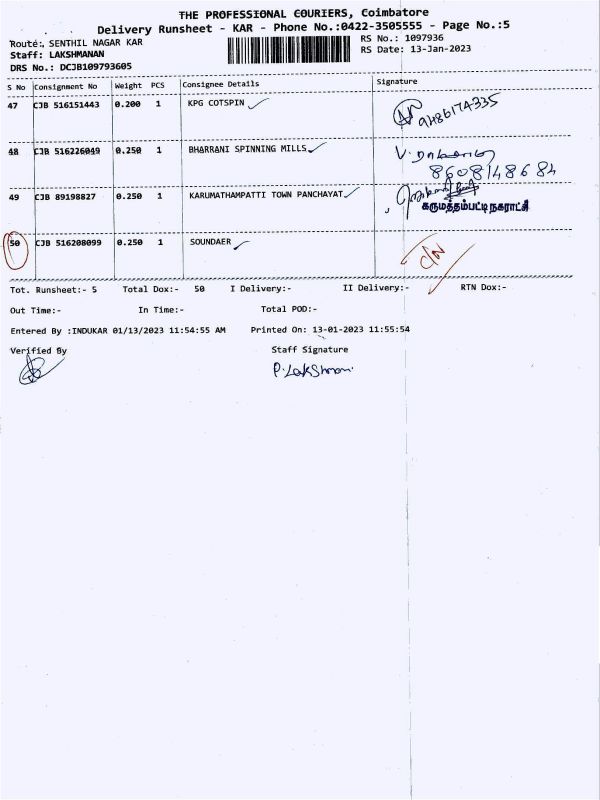 THE PROFESSIONAL COURIERS, Coimbatore
Delivery Runsheet - KAR - Phone No.:0422-3505555 - Page No.:5
Route: SENTHIL NAGAR KAR
RS No.: 1097936
Staff: LAKSHMANAN
RS Date: 13-Jan-2023
DRS No.: DCJB109793605
S No Consignment No Weight PCS Consignee Details Signature
47 CJB 516151443 0.200 1 KPG COTSPIN
9486174335
48 CJB 516226049 0.250 1 BHARRANI SPINNING MILLS
8608148684
49 CJB 89198827 0.250 1 KARUMATHAMPATTI TOWN PANCHAYAT
கருமத்தம்பட்டி நகராட்சி
50 CJB 516208099 0.250 1 SOUNDAER
Tot. Runsheet:- 5 Total Dox:- 50 I Delivery:- II Delivery:- RTN Dox:-
Out Time:- In Time:- Total POD:-
Entered By :INDUKAR 01/13/2023 11:54:55 AM Printed On: 13-01-2023 11:55:54
Verified By Staff Signature
P. Lakshmanan